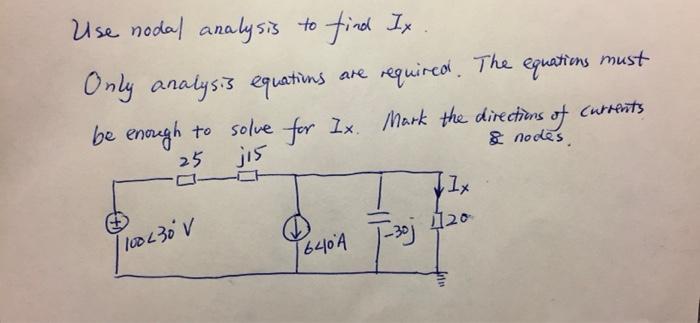 Use nodal analysis to find Ix.
Only analysis equations are required. The equations must
be enough to solve for Ix. Mark the directions of currents
& nodes.
25 j15
Ix
+
100∠30° V
6∠0°A
-30j
20